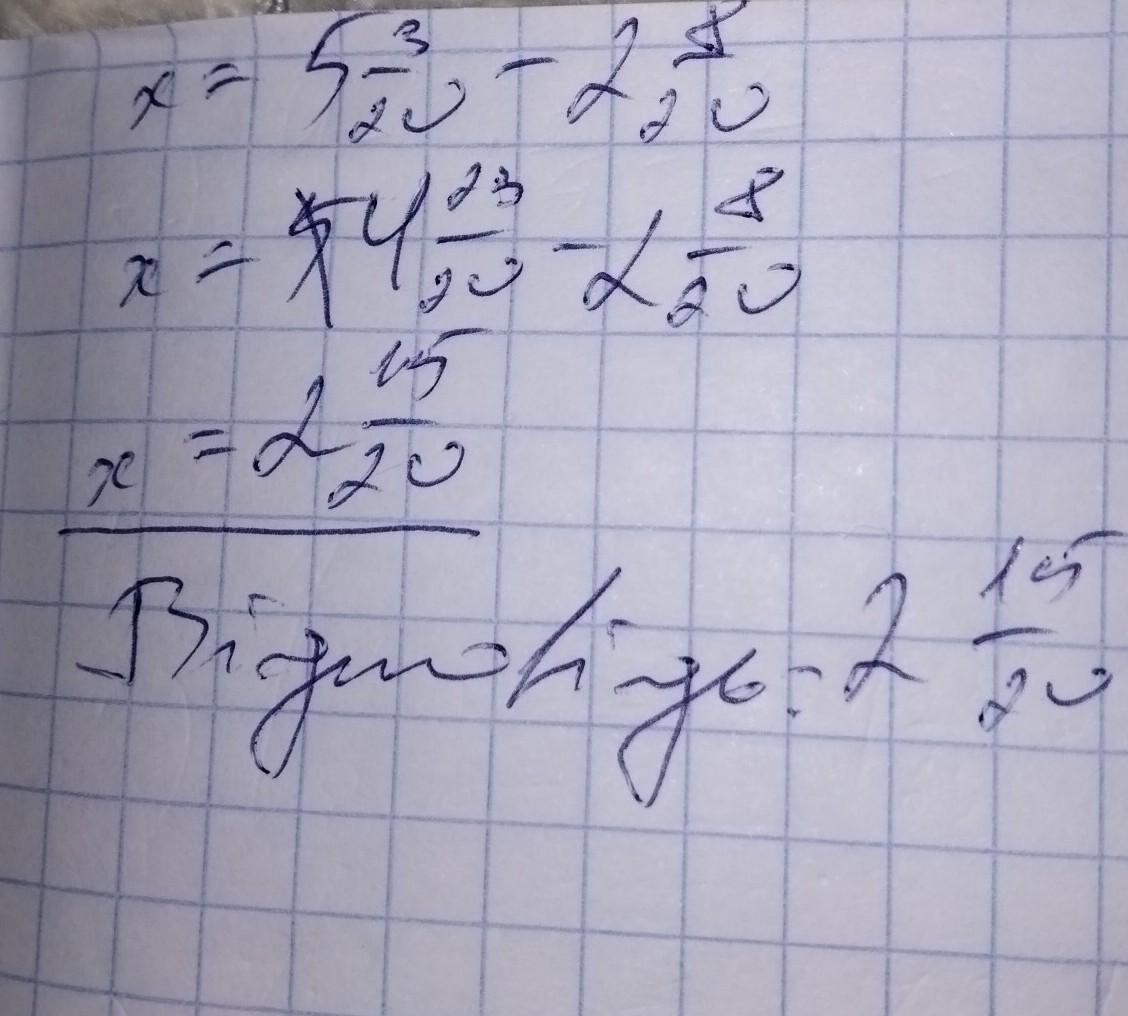 x = 5 3/20 - 2 8/20
x = 4 23/20 - 2 8/20
x = 2 15/20
Відповідь: 2 15/20